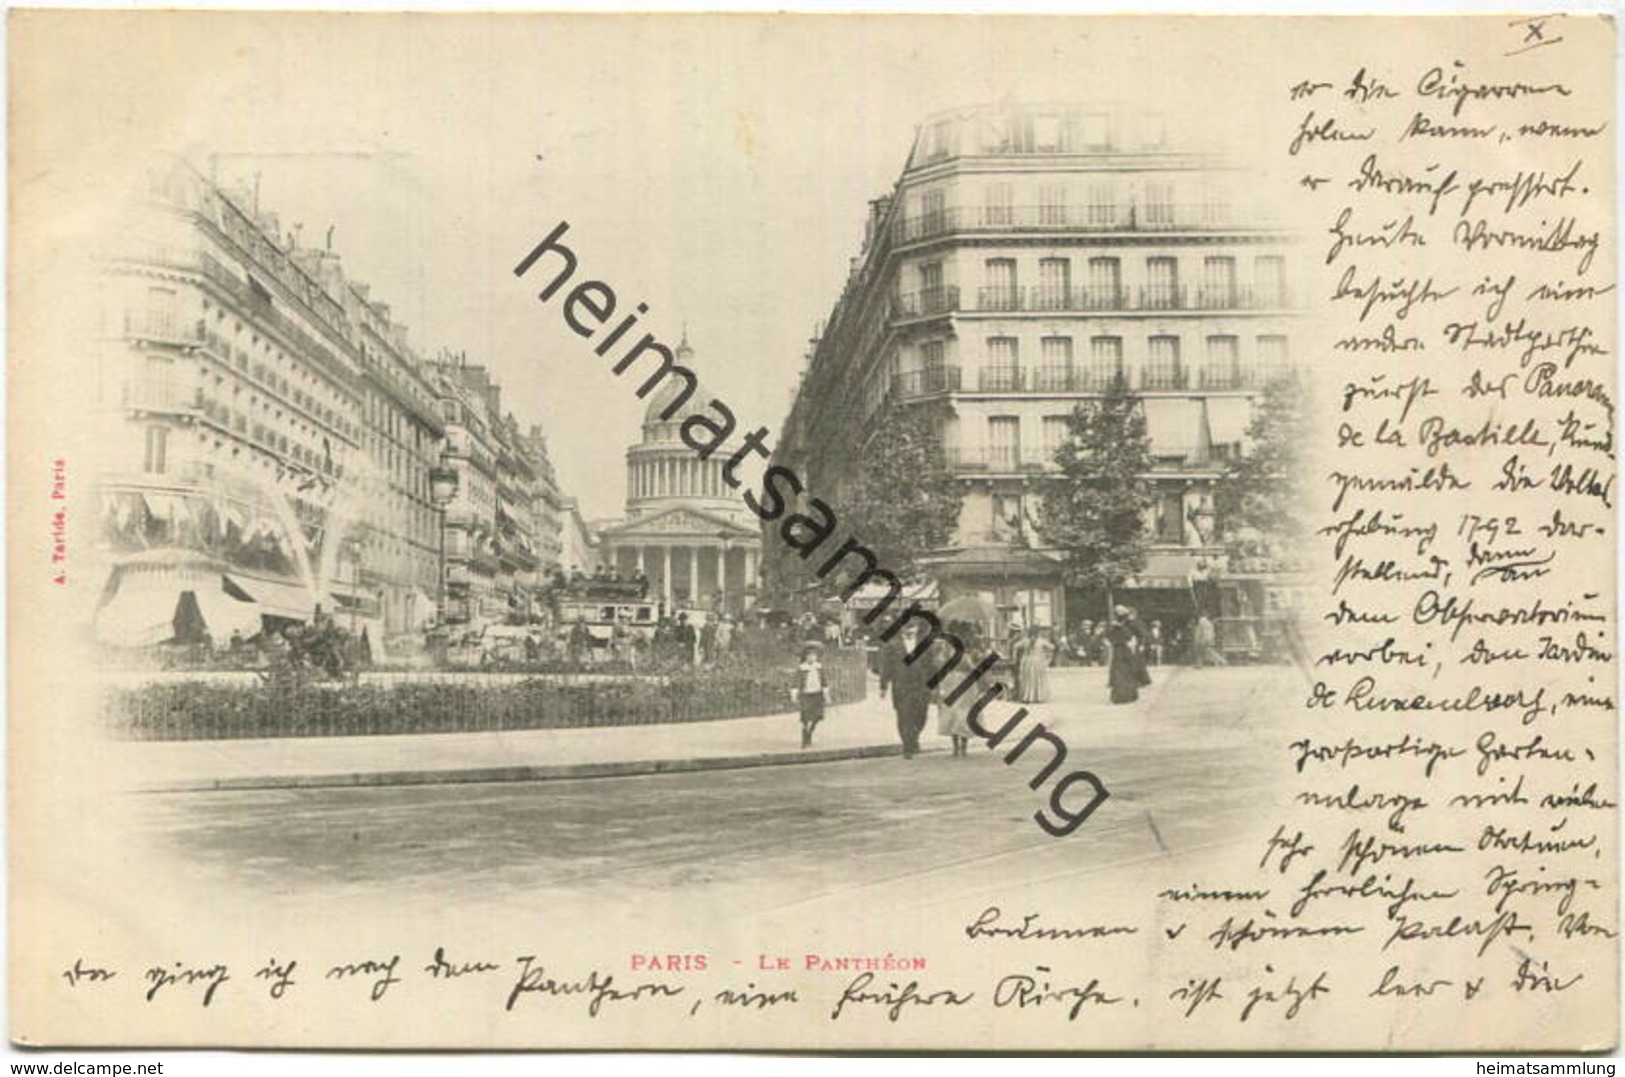 x
er die Cigarren
holen kann, wenn
er darauf pressirt.
Heute Vormittag
besuchte ich eine
andere Stadtparthie
zuerst das Panorama
de la Bastille, Rund-
gemälde die Volks
erhebung 1792 dar-
stellend, dann an
dem Observatorium
vorbei, den Jardin
de Luxembourg, eine
großartige Garten-
anlage mit vielen
sehr schönen Statuen,
einem herrlichen Spring-
Brunnen & schönem Palast. Von
da ging ich nach dem Pantheon, eine frühere Kirche, ist jetzt leer & die
PARIS - LE PANTHÉON
A. Taride, Paris
heimatsammlung
www.delcampe.net
heimatsammlung